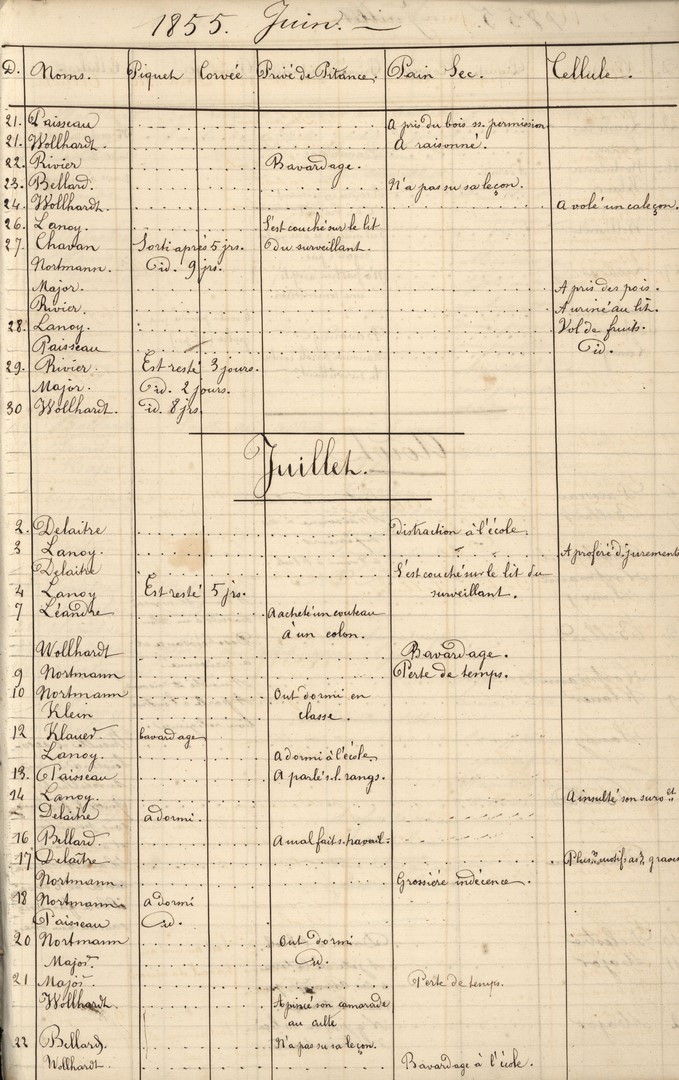 1855. Juin. —
D. Noms. Piquet Corvée Privé de Pitance. Pain Sec. Cellule.
21. Paisseau A pris du bois ss. permission
21. Wollhardt. A raisonné.
22. Rivier Bavardage.
23. Bellard. N'a pas su sa leçon.
24. Wollhardt. A volé un caleçon.
26. Lanoy. S'est couché sur le lit
27. Chavan Sorti après 5 jrs. Du surveillant.
Nortmann. Id. 9 jrs.
Major. A pris des pois.
Rivier. A uriné au lit.
28. Lanoy. Vol de fruits.
Paisseau Id.
29. Rivier Est resté 3 jours.
Major. Id. 2 jours.
30 Wollhardt. Id. 8 jrs.
Juillet.
2. Delaitre distraction à l'école.
3 Lanoy. A proféré d. jurements
Delaitre S'est couché sur le lit du
4 Lanoy Est resté 5 jrs. surveillant.
7 Léandre A acheté un couteau
à un colon.
Wollhardt Bavardage.
9 Nortmann Perte de temps.
10 Nortmann Ont dormi en
Klein classe.
12 Klauer. bavardage
Lanoy. A dormi à l'école.
13. Paisseau A parlé s. l. rangs.
14 Lanoy. A insulté son survet
– Delaitre a dormi.
16 Bellard. A mal fait s. travail.
17 Delaitre Plusrs motifs graves
Nortmann. Grossière indécence.
18 Nortmann a dormi
Paisseau Id.
20 Nortmann Ont dormi
Major. Id.
21 Major. Perte de temps.
Wollhardt A pincé son camarade
au culte
22 Bellard. N'a pas su sa leçon.
Wollhardt. Bavardage à l'école.